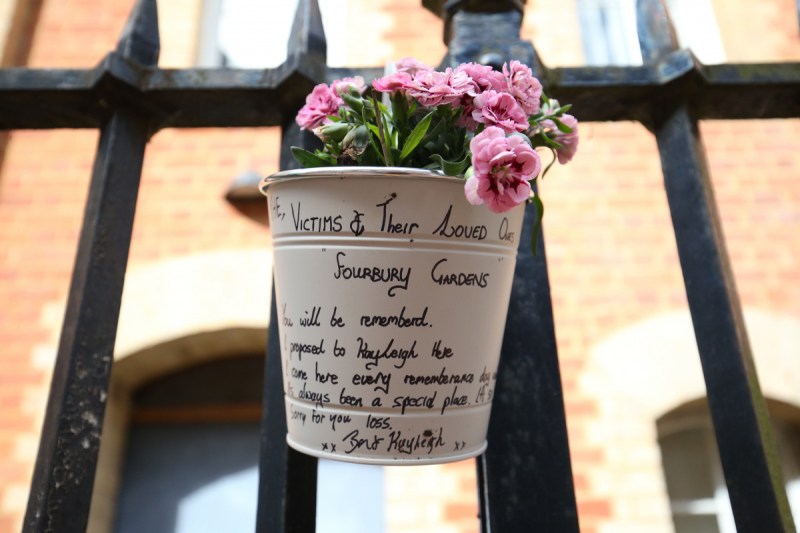 VICTIMS & Their LOVED Ones
"Fourbury Gardens"
You will be rememberd.
I proposed to Kayleigh Here
I come here every rememberance day
It's always been a special place.
Sorry for you loss.
xx Ben & Kayleigh xx